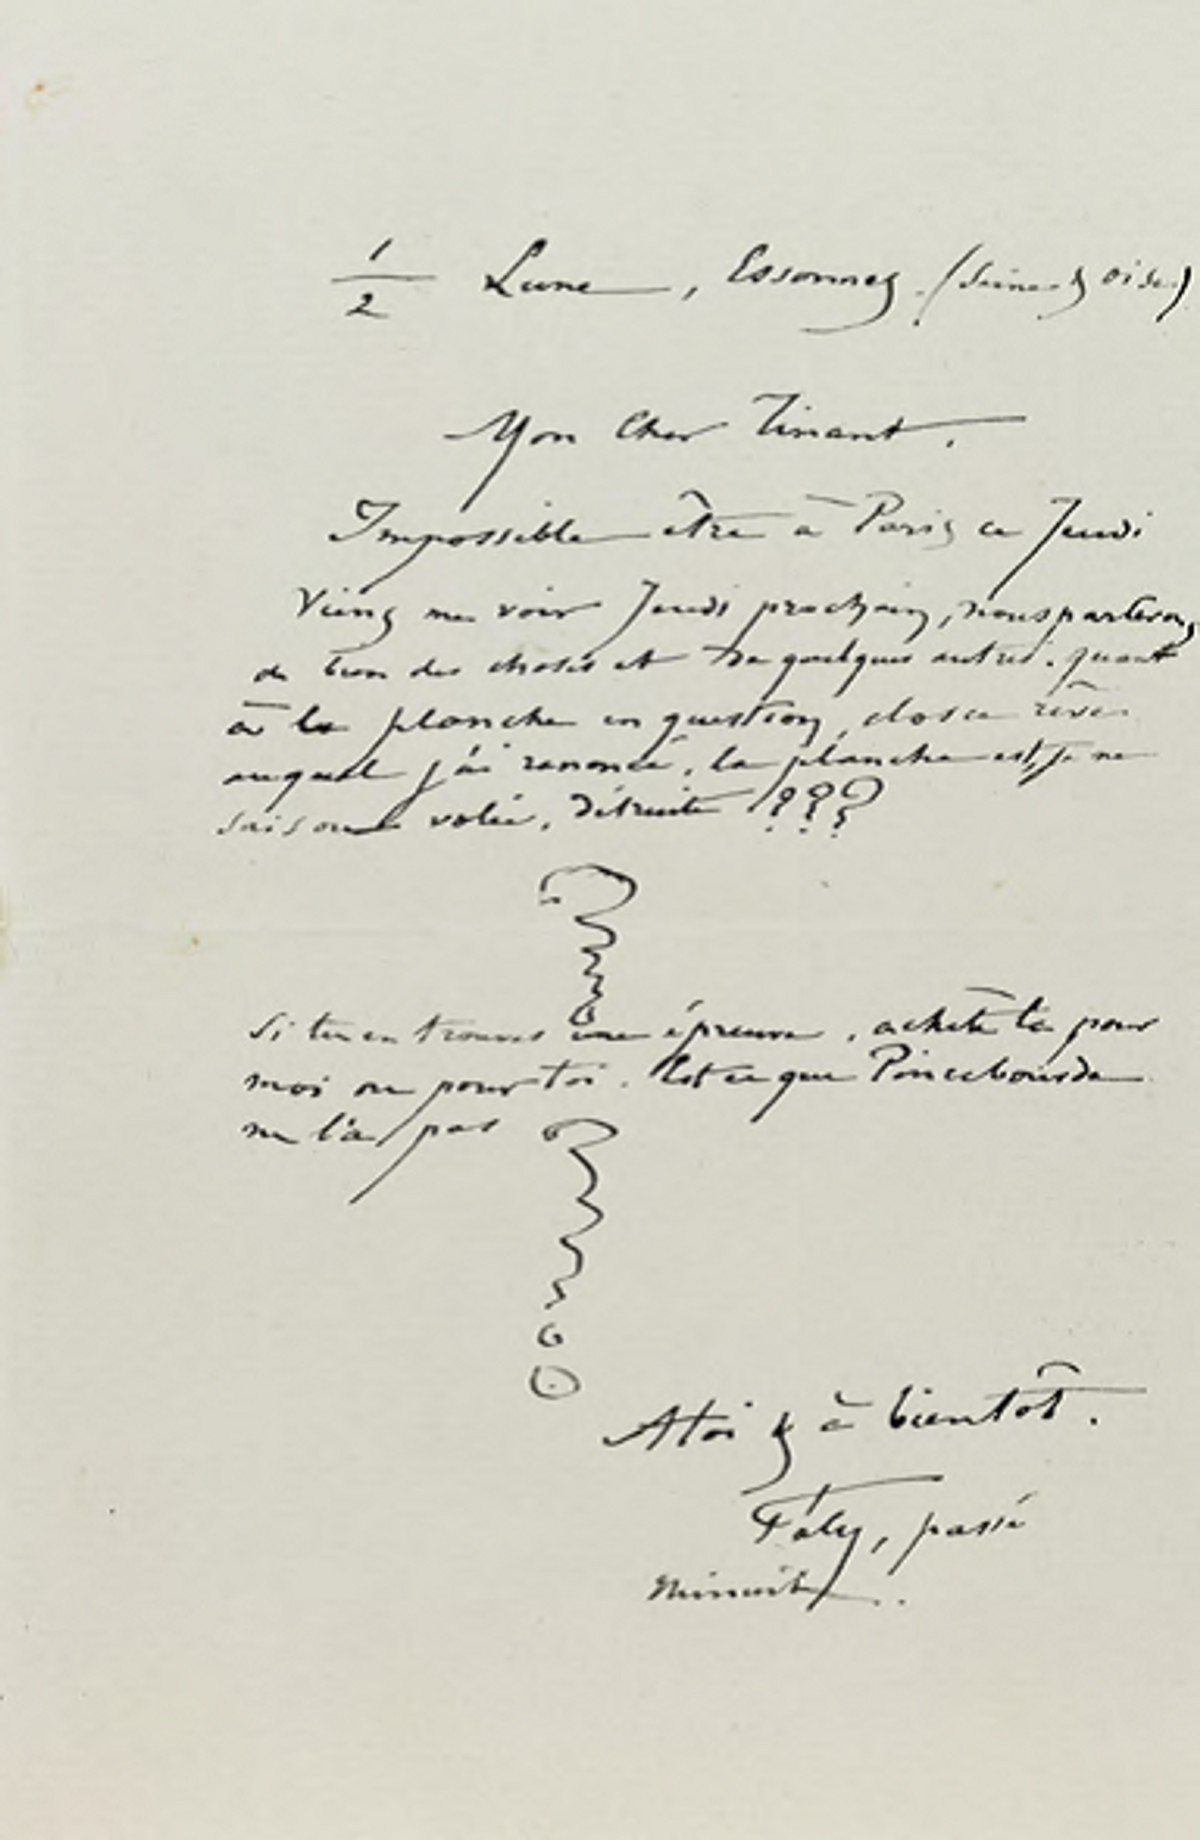 1/2 Lune, Essonnes. (Seine & Oise)
Mon Cher Tinant.
Impossible être à Paris ce Jeudi
Viens me voir Jeudi prochain, nous parlerons
de bien des choses et de quelques autres. quant
à la planche en question, c'est un rêve
auquel j'ai renoncé, la planche est, je ne
sais où volée, détruite ???
?
Si tu en trouves une épreuve, achète la pour
moi ou pour toi. Est ce que Pincebourde
ne l'a pas ?
A toi & à bientôt.
Fély, passé
Minuit.